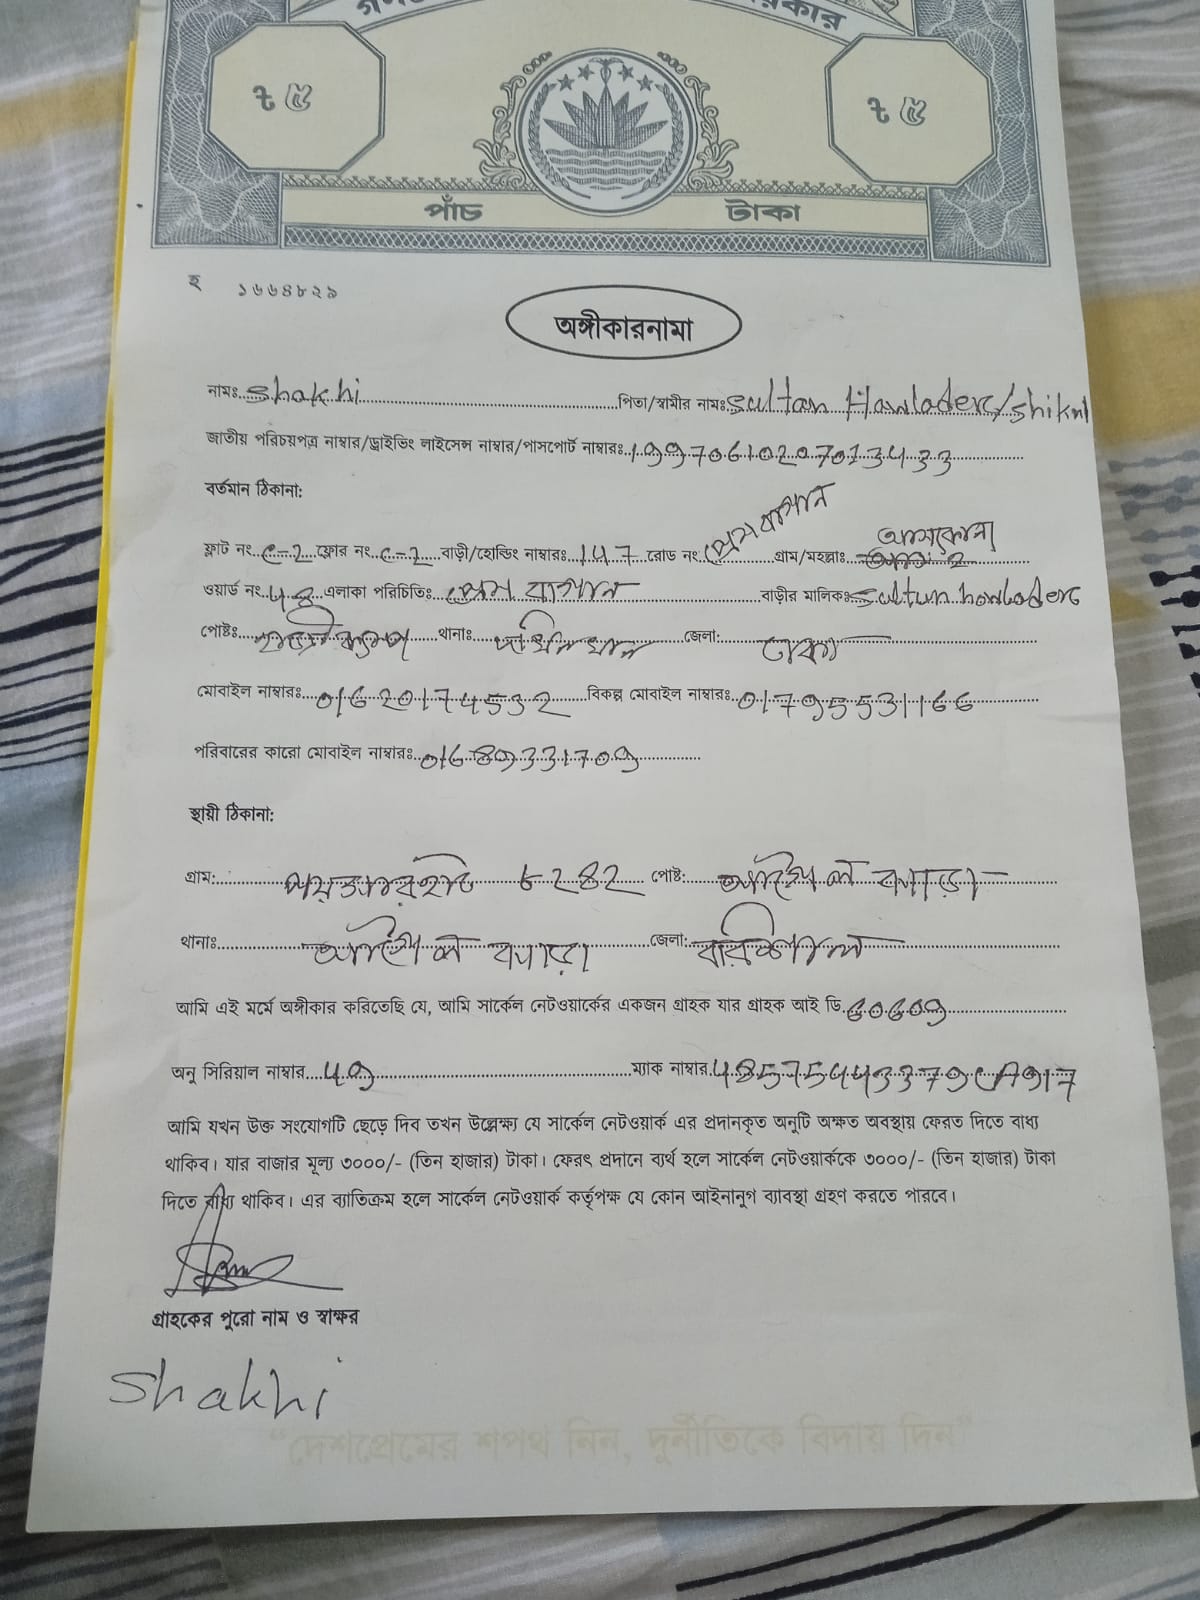 ৳ ৫
৳ ৫
পাঁচ টাকা
হ ১৬৬৪৮২৯
অঙ্গীকারনামা
নামঃ Shakhi পিতা/স্বামীর নামঃ Sultan Howlader/
জাতীয় পরিচয়পত্র নাম্বার/ড্রাইভিং লাইসেন্স নাম্বার/পাসপোর্ট নাম্বারঃ 19970610207013433
বর্তমান ঠিকানা:
ফ্লাট নং ফ্লোর নং বাড়ী/হোল্ডিং নাম্বারঃ 147 রোড নং প্রেম বাগান গ্রাম/মহল্লাঃ আসকোনা
ওয়ার্ড নং এলাকা পরিচিতিঃ প্রেম বাগান বাড়ীর মালিকঃ Sultan howlader
পোষ্টঃ থানাঃ দক্ষিনখান জেলা: ঢাকা
মোবাইল নাম্বারঃ 01620174532 বিকল্প মোবাইল নাম্বারঃ 01795531166
পরিবারের কারো মোবাইল নাম্বারঃ 01689331709
স্থায়ী ঠিকানা:
গ্রাম: পয়সারহাট 8282 পোষ্ট: আগৈলঝাড়া
থানাঃ আগৈলঝাড়া জেলা: বরিশাল
আমি এই মর্মে অঙ্গীকার করিতেছি যে, আমি সার্কেল নেটওয়ার্কের একজন গ্রাহক যার গ্রাহক আই ডি. 60609
অনু সিরিয়াল নাম্বার 49 ম্যাক নাম্বার
আমি যখন উক্ত সংযোগটি ছেড়ে দিব তখন উল্লেক্ষ্য যে সার্কেল নেটওয়ার্ক এর প্রদানকৃত অনুটি অক্ষত অবস্থায় ফেরত দিতে বাধ্য
থাকিব। যার বাজার মূল্য ৩০০০/- (তিন হাজার) টাকা। ফেরৎ প্রদানে ব্যর্থ হলে সার্কেল নেটওয়ার্ককে ৩০০০/- (তিন হাজার) টাকা
দিতে বাধ্য থাকিব। এর ব্যাতিক্রম হলে সার্কেল নেটওয়ার্ক কর্তৃপক্ষ যে কোন আইনানুগ ব্যাবস্থা গ্রহণ করতে পারবে।
গ্রাহকের পুরো নাম ও স্বাক্ষর
Shakhi
"দেশপ্রেমের শপথ নিন, দুর্নীতিকে বিদায় দিন"